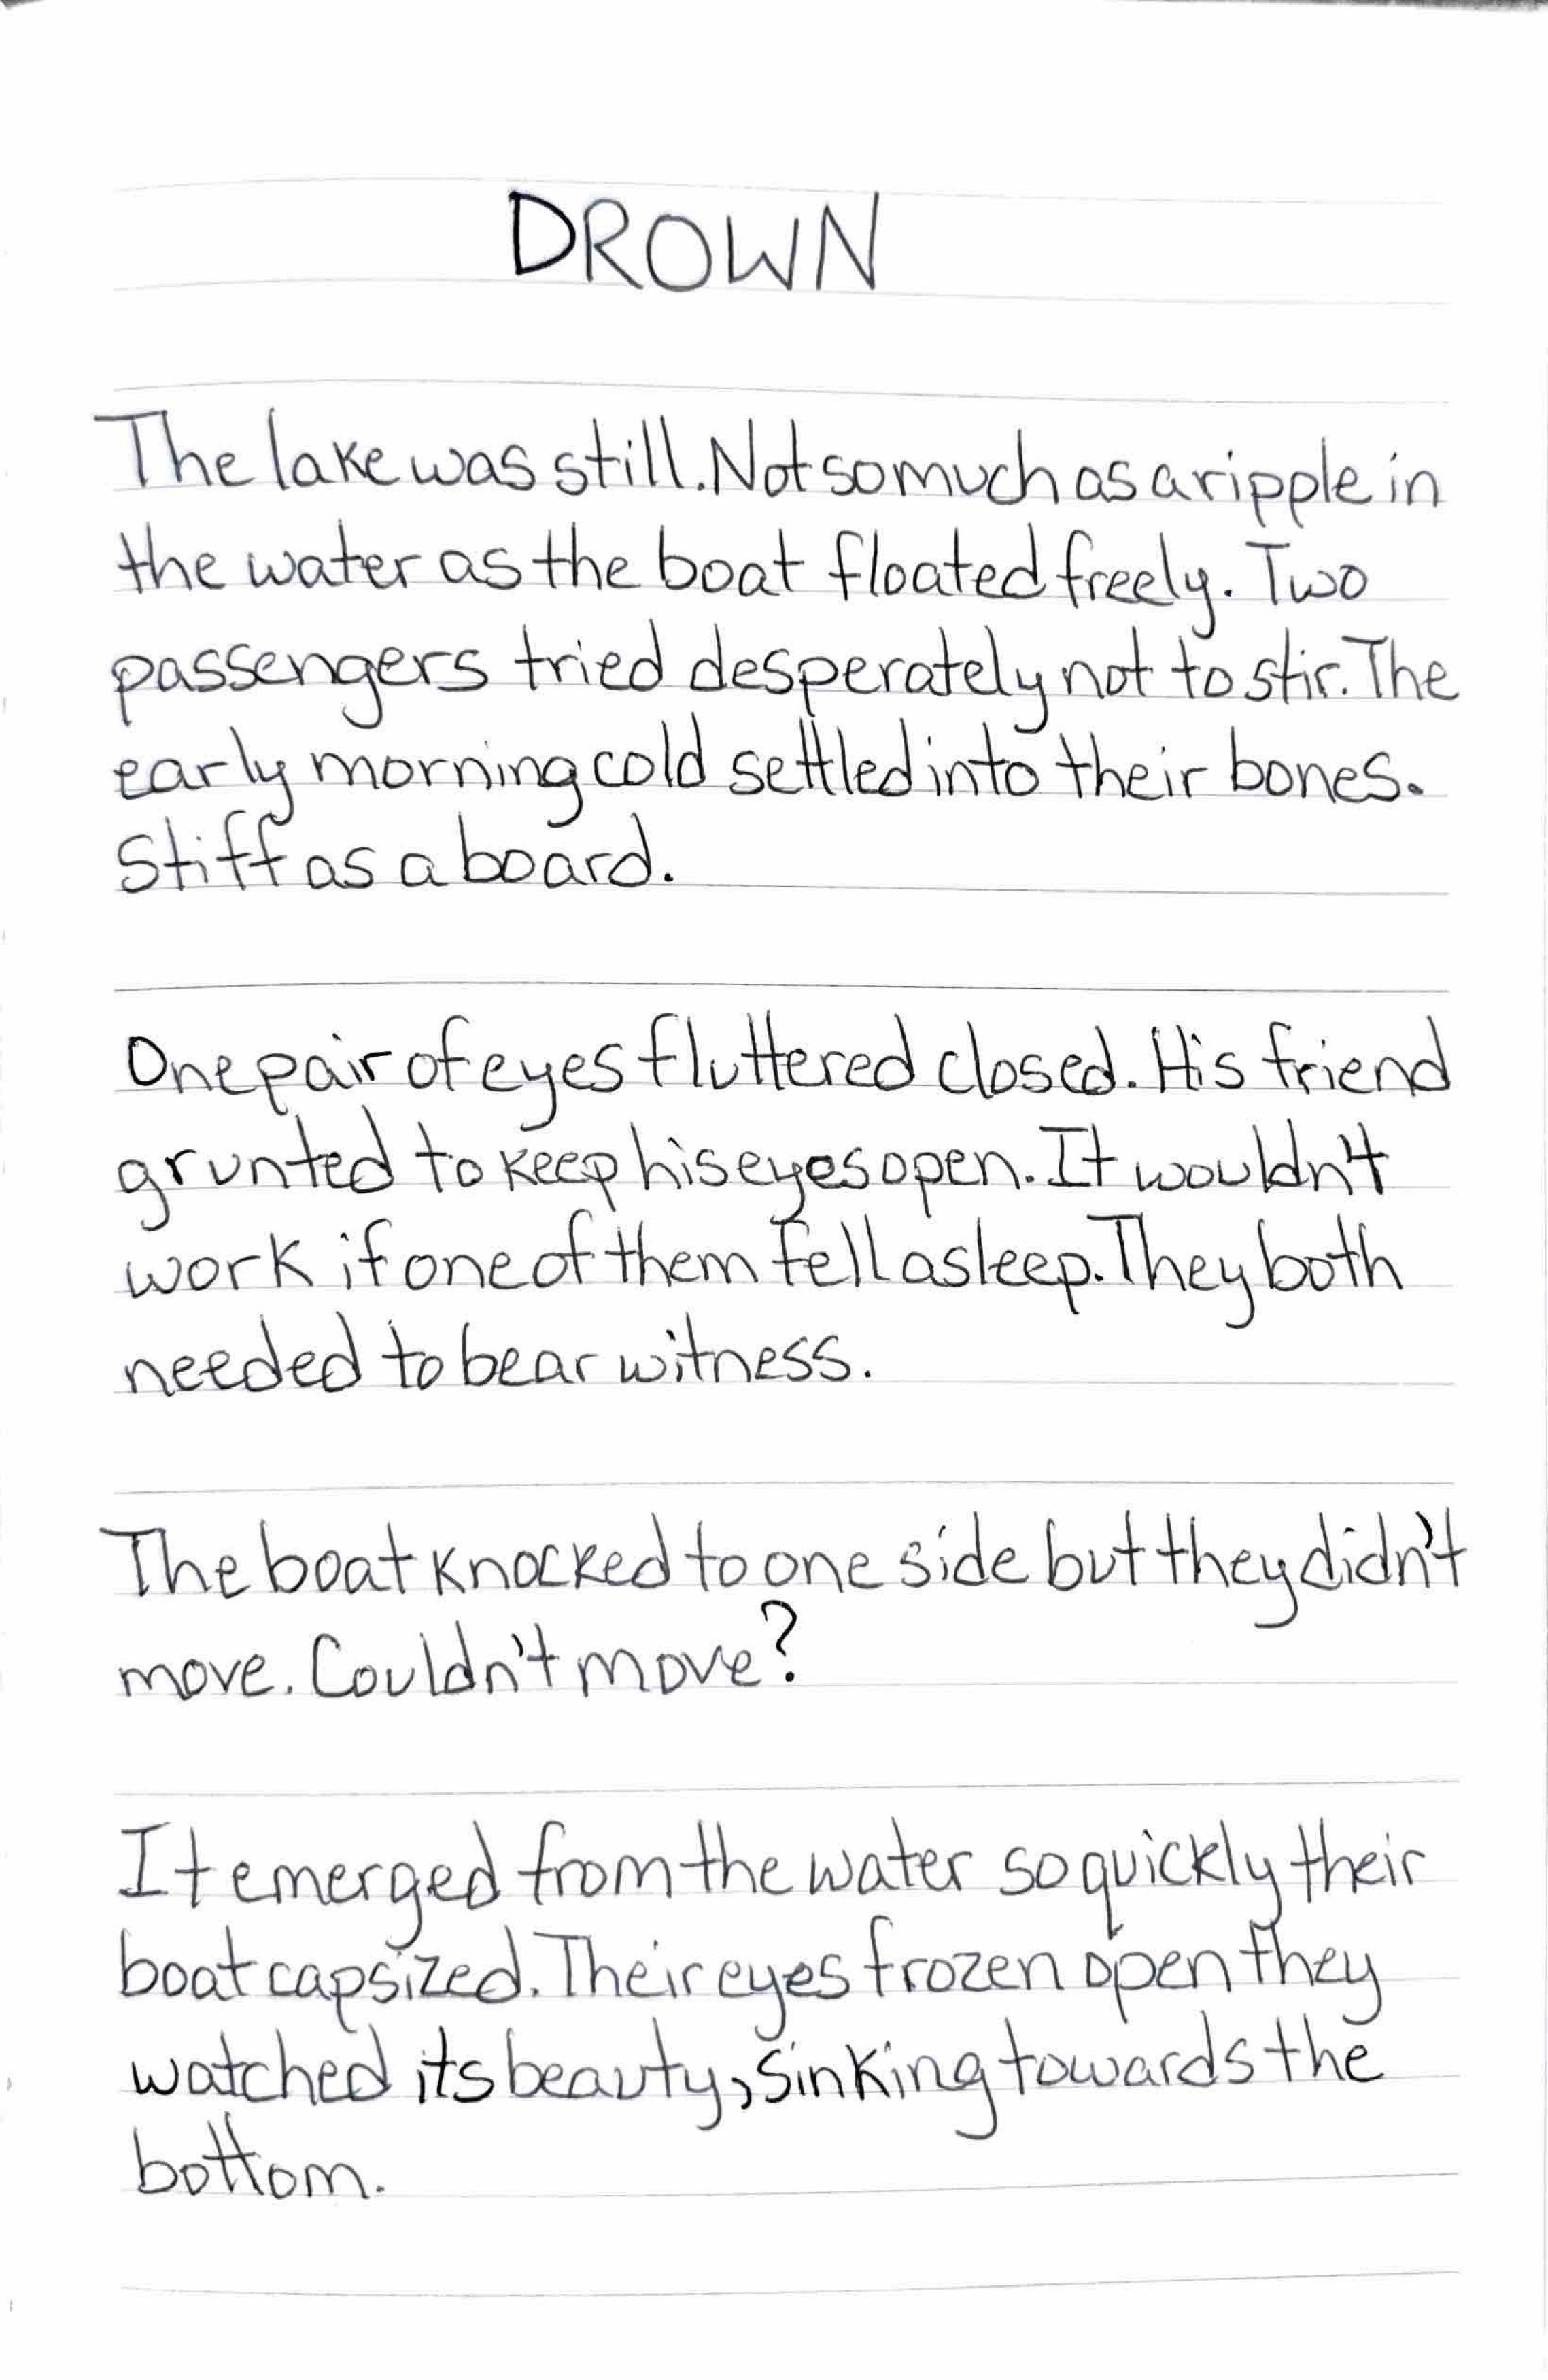 DROWN
The lake was still. Not so much as a ripple in
the water as the boat floated freely. Two
passengers tried desperately not to stir. The
early morning cold settled into their bones.
Stiff as a board.
One pair of eyes fluttered closed. His friend
grunted to keep his eyes open. It wouldn't
work if one of them fell asleep. They both
needed to bear witness.
The boat knocked to one side but they didn't
move. Couldn't move?
It emerged from the water so quickly their
boat capsized. Their eyes frozen open they
watched its beauty, sinking towards the
bottom.